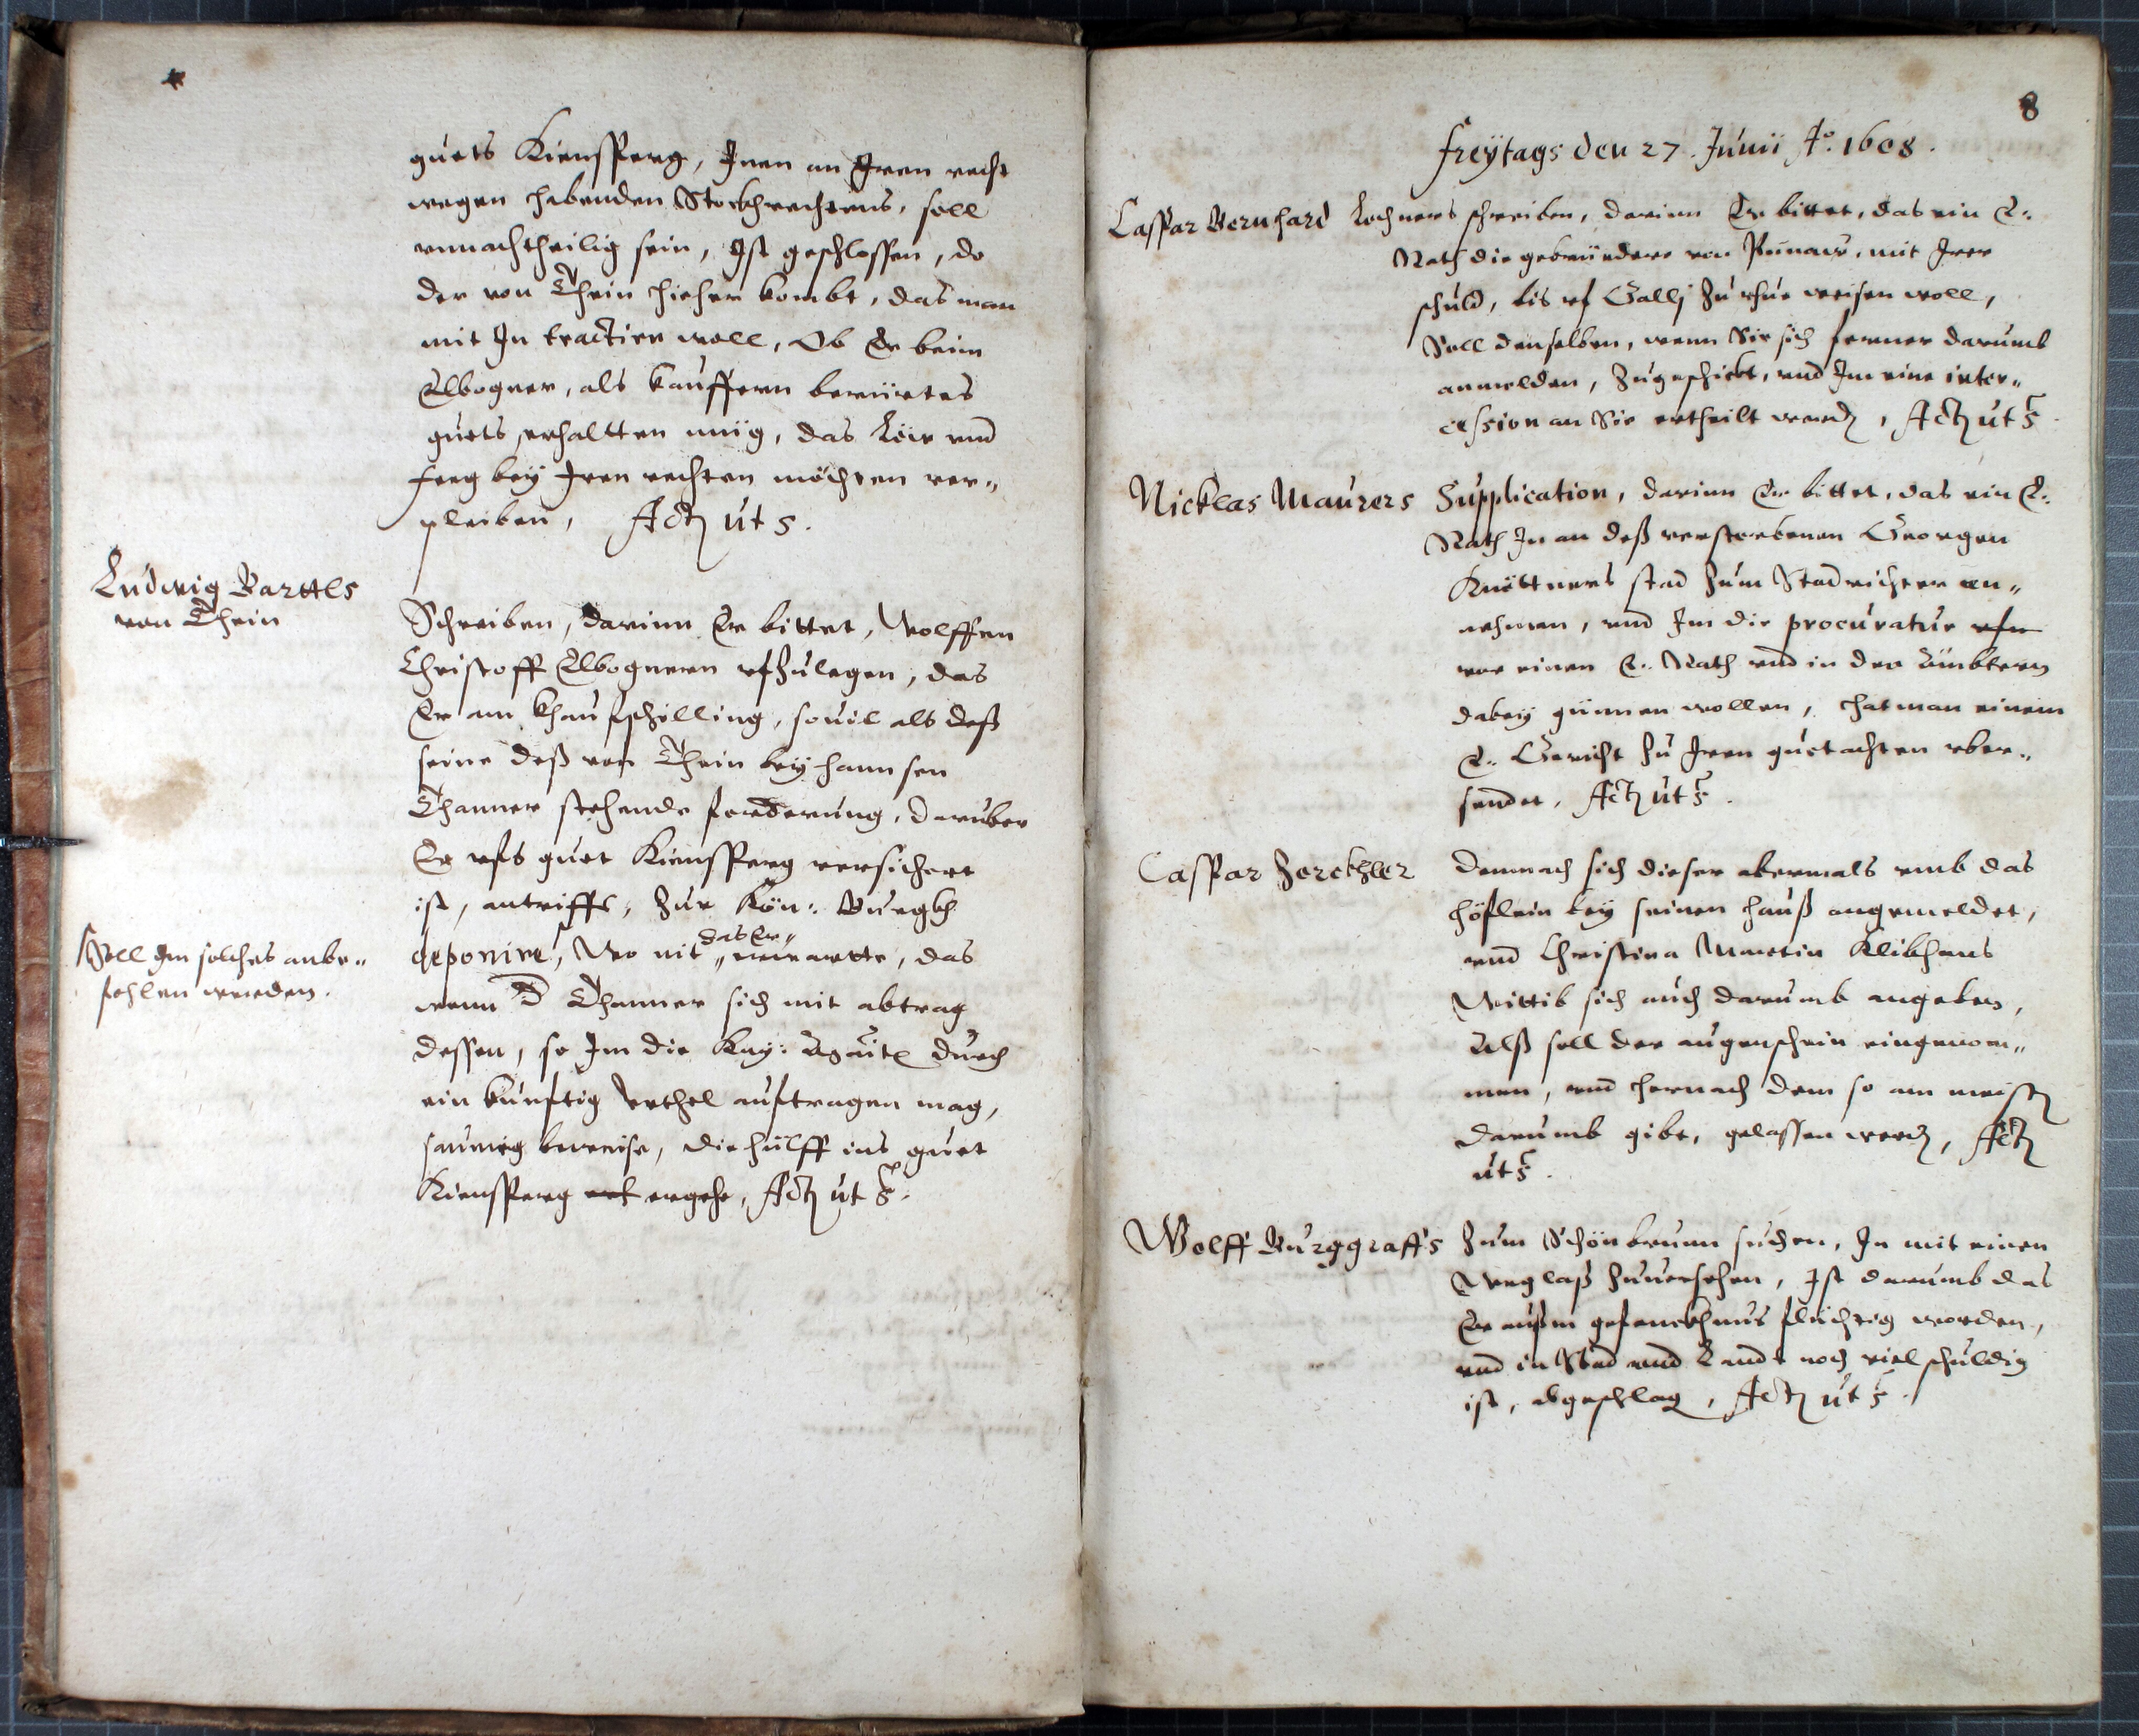 guets Kiensperg, Inen an Iren recht
wegen habenden Stockhrechtens, soll
vnnachtheilig sein, Ist geschlossen, do
der von Thein hieher kombt, das man
mit In tractirn woll, Ob Er beim
Elbogner, als kauffern berürtes
guets erhaltten müg, das Leir vnd
Feeg bey Iren rechten möchten ver„
pleiben, Actz ut s.
Ludwig Barttls
von Thein
Schreiben, darinn Er bittet, Wolffen
Christoff Elbognern vfzulegen, das
Er am Khaufschilling, souil als deß
seine deß von Thein bey hannsen
Thanner stehende forderung, daruber
Er vfs guet Kiensperg versichert
ist, antrifft, zur Kön: Burgkh
Soll Im solches anbe„
fohlen werden.
deponire, Wo nit „das Er„ , das
wenn d Thanner sich mit abtrag
dessen, so Im die Kay: durch
ein kunftig vrthel auftragen mag,
saumig beweise, die hülff ins guet
Kiensperg ergehe, Actz ut s.
8
Freÿtags den 27. Junii Ao. 1608.
Caspar Bernhard Lochners schreiben, darinn Er bittet, das ein E:
Rath die gebrüedere von Pünaw, mit Irer
schuld, bis vf Gallj zu rhue weisen woll,
Soll denselben, wenn Sie sich ferner darumb
anmelden, zugeschickt, vnd Im eine inter„
cession an Sie ertheilt werdn, Actz ut s
Nicklas Maurers Supplication, darinn Er bittet, das ein E:
Rath In an deß verstorbenen Georgen
Knöttners stad zum Stadrichter an„
nehmen, vnd Im die procuratur
vor einen E: Rath vnd in den Ämbtern
dabey günnen wollen, hat man einem
E: Gericht zu Iren guetachten vber„
sendet, Actz ut s.
Caspar Zerckhler Demnach sich dieser abermals vmb das
höflein bey seinen hauß angemeldet,
vnd Christina Martin Klikhans
Wittib sich auch darumb angeben,
Alß soll der augenschein eingenom„
men, vnd hernach dem so am meistn
darumb gibt, gelassen werdn, Actz
ut s.
Wolff Burggraffs zum Schönbrunn suchen, In mit einen
Weglaß zuuersehen, Ist darumb das
Er außm gefenckhnus flüchtig worden,
vnd in Stad vnd Landt noch viel schuldig
ist, abgeschlagn, Actz ut s.